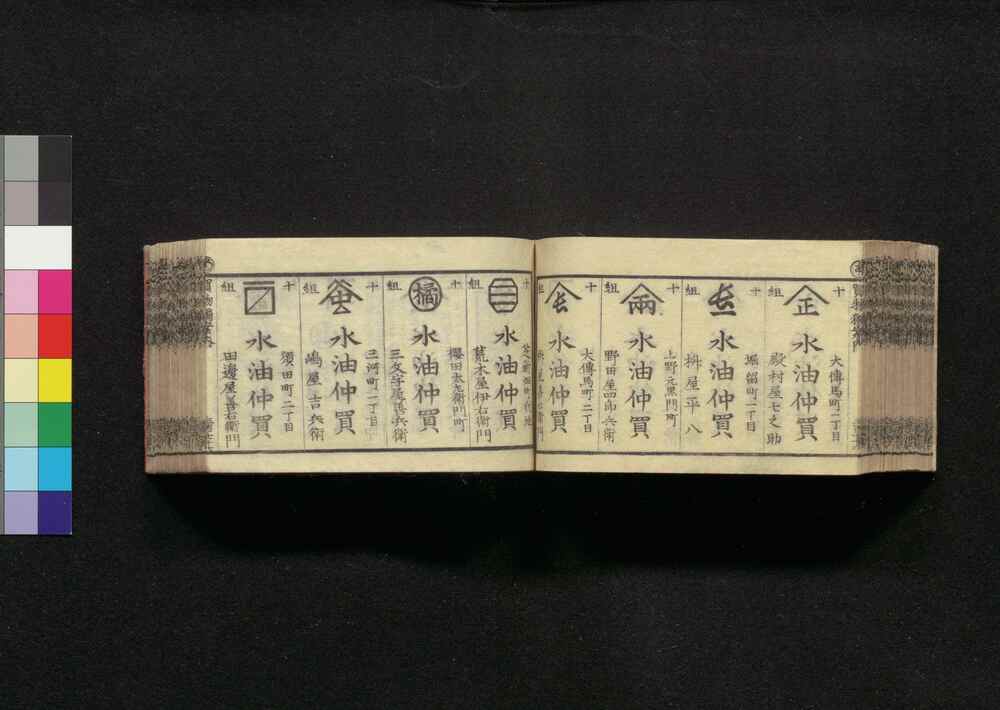 十組
正
水油仲買
大傳馬町二丁目
殿村屋七之助
十組
水油仲買
堀留町二丁目
舛屋平八
十組
兩
水油仲買
上野元黒門町
野田屋四郎兵衛
十組
水油仲買
大傳馬町二丁目
十組
三
水油仲買
荒木屋伊右衛門
十組
橘
水油仲買
櫻田太左衛門町
三文字屋善兵衛
十組
水油仲買
三河町二丁目
嶋屋吉兵衛
十組
水油仲買
須田町二丁目
田邊屋善右衛門